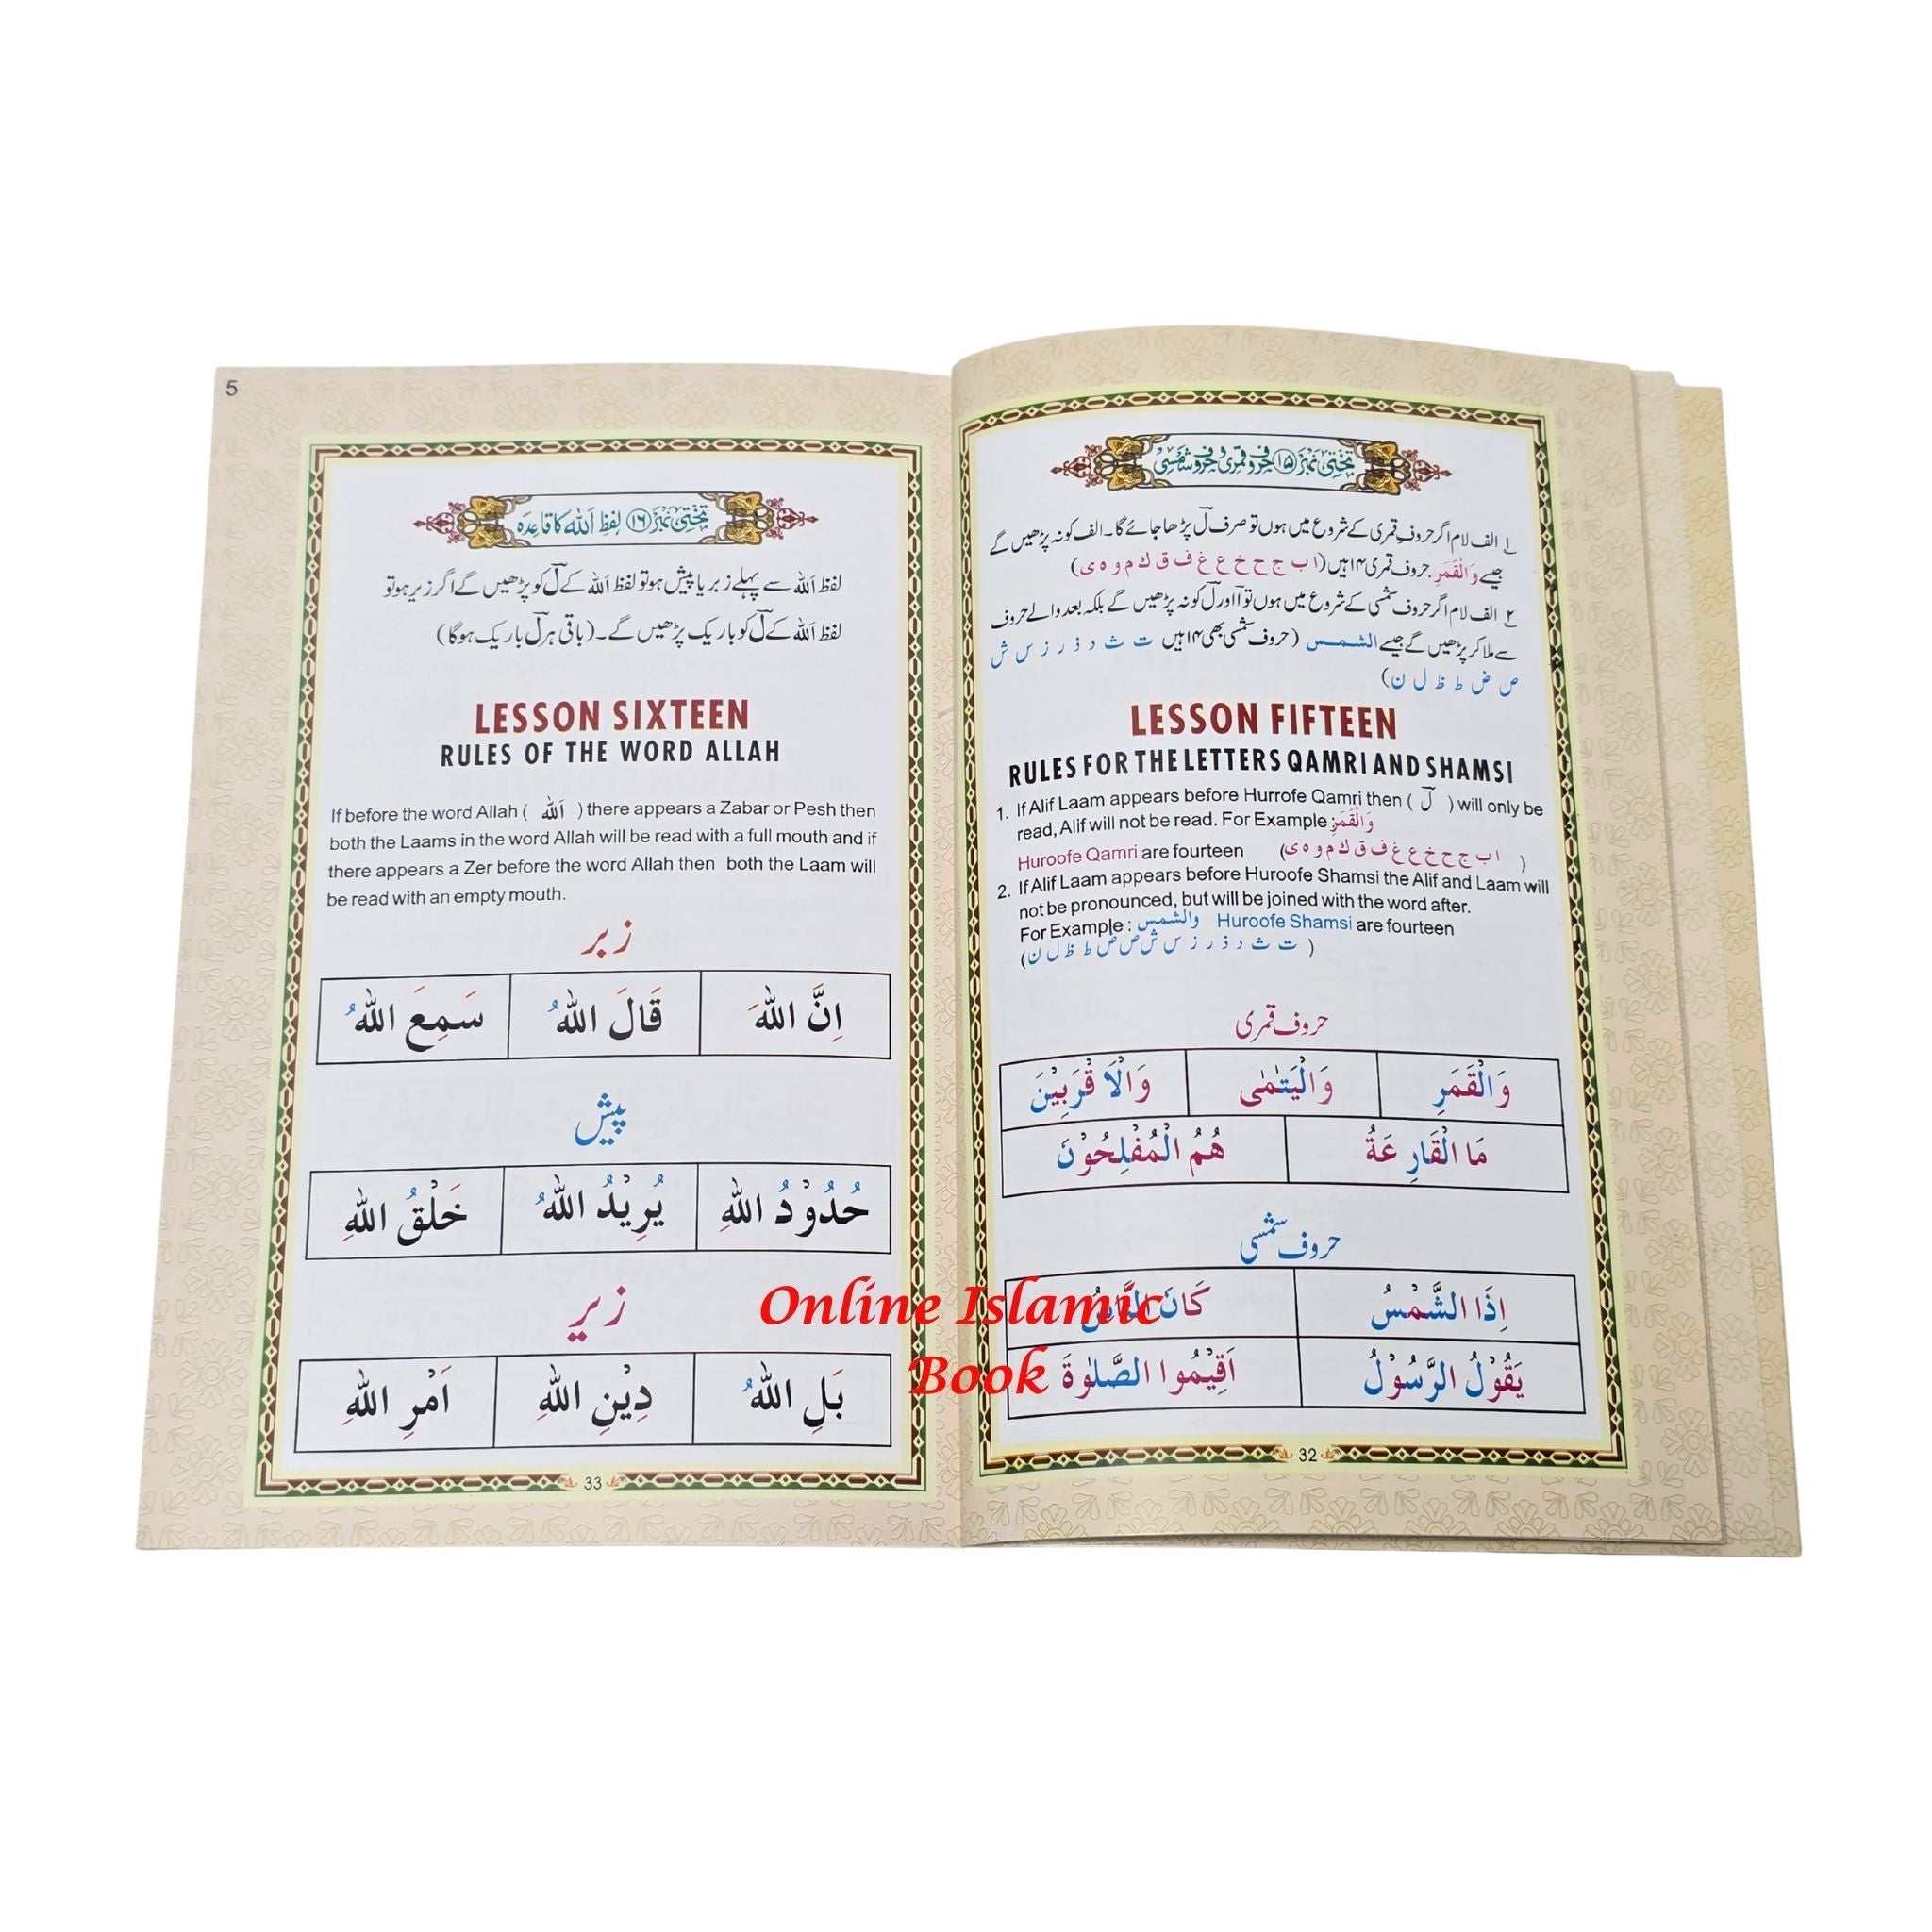 تختی نمبر ۱۵ حروف قمری و حروف شمسی
۱ الف لام اگر حروف قمری کے شروع میں ہوں تو صرف لْ پڑھا جائے گا۔ الف کو نہ پڑھیں گے
جیسے وَالْقَمَرِ۔ حروف قمری ۱۴ ہیں (ا ب ج ح خ ع غ ف ق ك م و ه ی)
۲ الف لام اگر حروف شمسی کے شروع میں ہوں تو آ اور لْ کو نہ پڑھیں گے بلکہ بعد والے حروف
سے ملا کر پڑھیں گے جیسے الشمس (حروف شمسی بھی ۱۴ ہیں ت ث د ذ ر ز س ش
ص ض ط ظ ل ن)
LESSON FIFTEEN
RULES FOR THE LETTERS QAMRI AND SHAMSI
1. If Alif Laam appears before Hurrofe Qamri then ( لْ ) will only be
read, Alif will not be read. For Example : وَالْقَمَرِ
Huroofe Qamri are fourteen (ا ب ج ح خ ع غ ف ق ك م و ه ی)
2. If Alif Laam appears before Huroofe Shamsi the Alif and Laam will
not be pronounced, but will be joined with the word after.
For Example : والشمس Huroofe Shamsi are fourteen
(ت ث د ذ ر ز س ش ص ض ط ظ ل ن)
حروف قمری
وَالْقَمَرِ وَالْيَتٰمٰى وَالْاَقْرَبِيْنَ
مَا الْقَارِعَةُ هُمُ الْمُفْلِحُوْنَ
حروف شمسی
اِذَا الشَّمْسُ كَانَ النَّاسُ
يَقُوْلُ الرَّسُوْلُ اَقِيْمُوا الصَّلٰوةَ
32
5
تختی نمبر ۱۶ لفظ اَللہ کا قاعدہ
لفظ اَللہ سے پہلے زبر یا پیش ہو تو لفظ اَللہ کے لْ کو پڑھیں گے اگر زیر ہو تو
لفظ اَللہ کے لْ کو باریک پڑھیں گے۔ (باقی ہر لْ باریک ہوگا)
LESSON SIXTEEN
RULES OF THE WORD ALLAH
If before the word Allah ( اَللّٰه ) there appears a Zabar or Pesh then
both the Laams in the word Allah will be read with a full mouth and if
there appears a Zer before the word Allah then both the Laam will
be read with an empty mouth.
زبر
اِنَّ اللّٰهَ قَالَ اللّٰهُ سَمِعَ اللّٰهُ
پیش
حُدُوْدُ اللّٰهِ يُرِيْدُ اللّٰهُ خَلْقُ اللّٰهِ
زیر
بَلِ اللّٰهُ دِيْنِ اللّٰهِ اَمْرِ اللّٰهِ
33
Online Islamic
Book